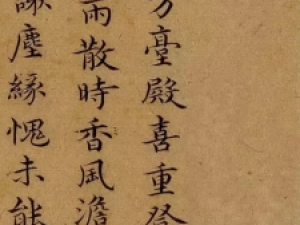 方臺殿喜重登
雨散時香風澹
塵緣愧未能